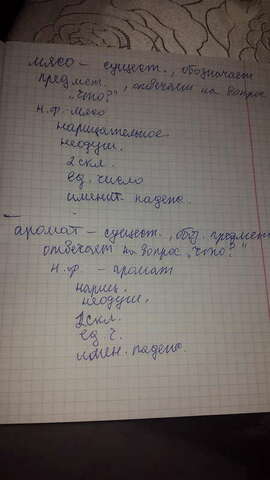 мясо – сущест., обозначает
предмет., отвечает на вопрос
„что?"
н.ф. - мясо
нарицательное
неодуш.
2 скл.
ед. число
именит. падеж.
аромат – сущест., обоз. предмет
отвечает на вопрос „что?"
н.ф. – аромат
нариц.
неодуш.
2 скл.
ед ч.
имен. падеж.